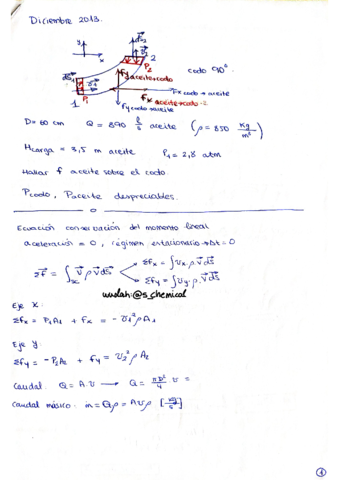 Diciembre 2013.
y
x
2
P₂
Fy aceite→codo
codo 90°
Fx codo → aceite
Fx aceite→codo
1
P₁
Fy codo→aceite
D= 60 cm Q = 890 l/s aceite (ρ = 850 kg/m³)
Hcarga = 3,5 m aceite P₁ = 2,8 atm
Hallar f aceite sobre el codo.
Pcodo, Paceite despreciables.
Ecuación conservación del momento lineal
aceleración = 0, régimen estacionario → Δt = 0
Σf⃗ = ∫sc v⃗ ρ v⃗ ds⃗ Σfx = ∫vx·ρ·v⃗ ds⃗
Σfy = ∫vy·ρ·v⃗ ds⃗
wuolah: @s_chemical
Eje x:
Σfx = P₁A₁ + Fx = - v₁² ρ A₁
Eje y:
Σfy = -P₂A₂ + fy = v₂² ρ A₂
Caudal: Q = A·v → Q = πD²/4 v =
Caudal másico: ṁ = Qρ = Avρ [kg/s]
1